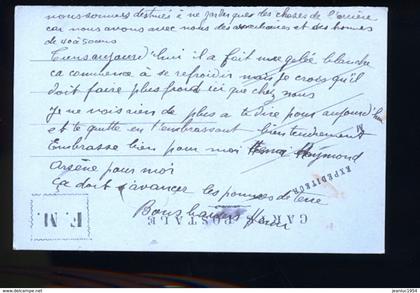 nous sommes destinés à ne garder que des choses de l'arrière
car nous avons avec nous des auxiliaires et des hommes
de 40 à 50 ans
Tiens aujourd'hui il a fait une gelée blanche
ca commence à se refroidir mais je crois qu'il
doit faire plus froid ici que chez nous
Je ne vois rien de plus a te dire pour aujourd'hui
et te quitte en t'embrassant bien tendrement
Embrasse bien pour moi Raymond
Arsène pour moi
Ça doit s'avancer les pommes de terre
Bons baisers Henri
EXPEDITEUR
M
CARTE POSTALE
F. M.
delcampe.net
jeanluc1954